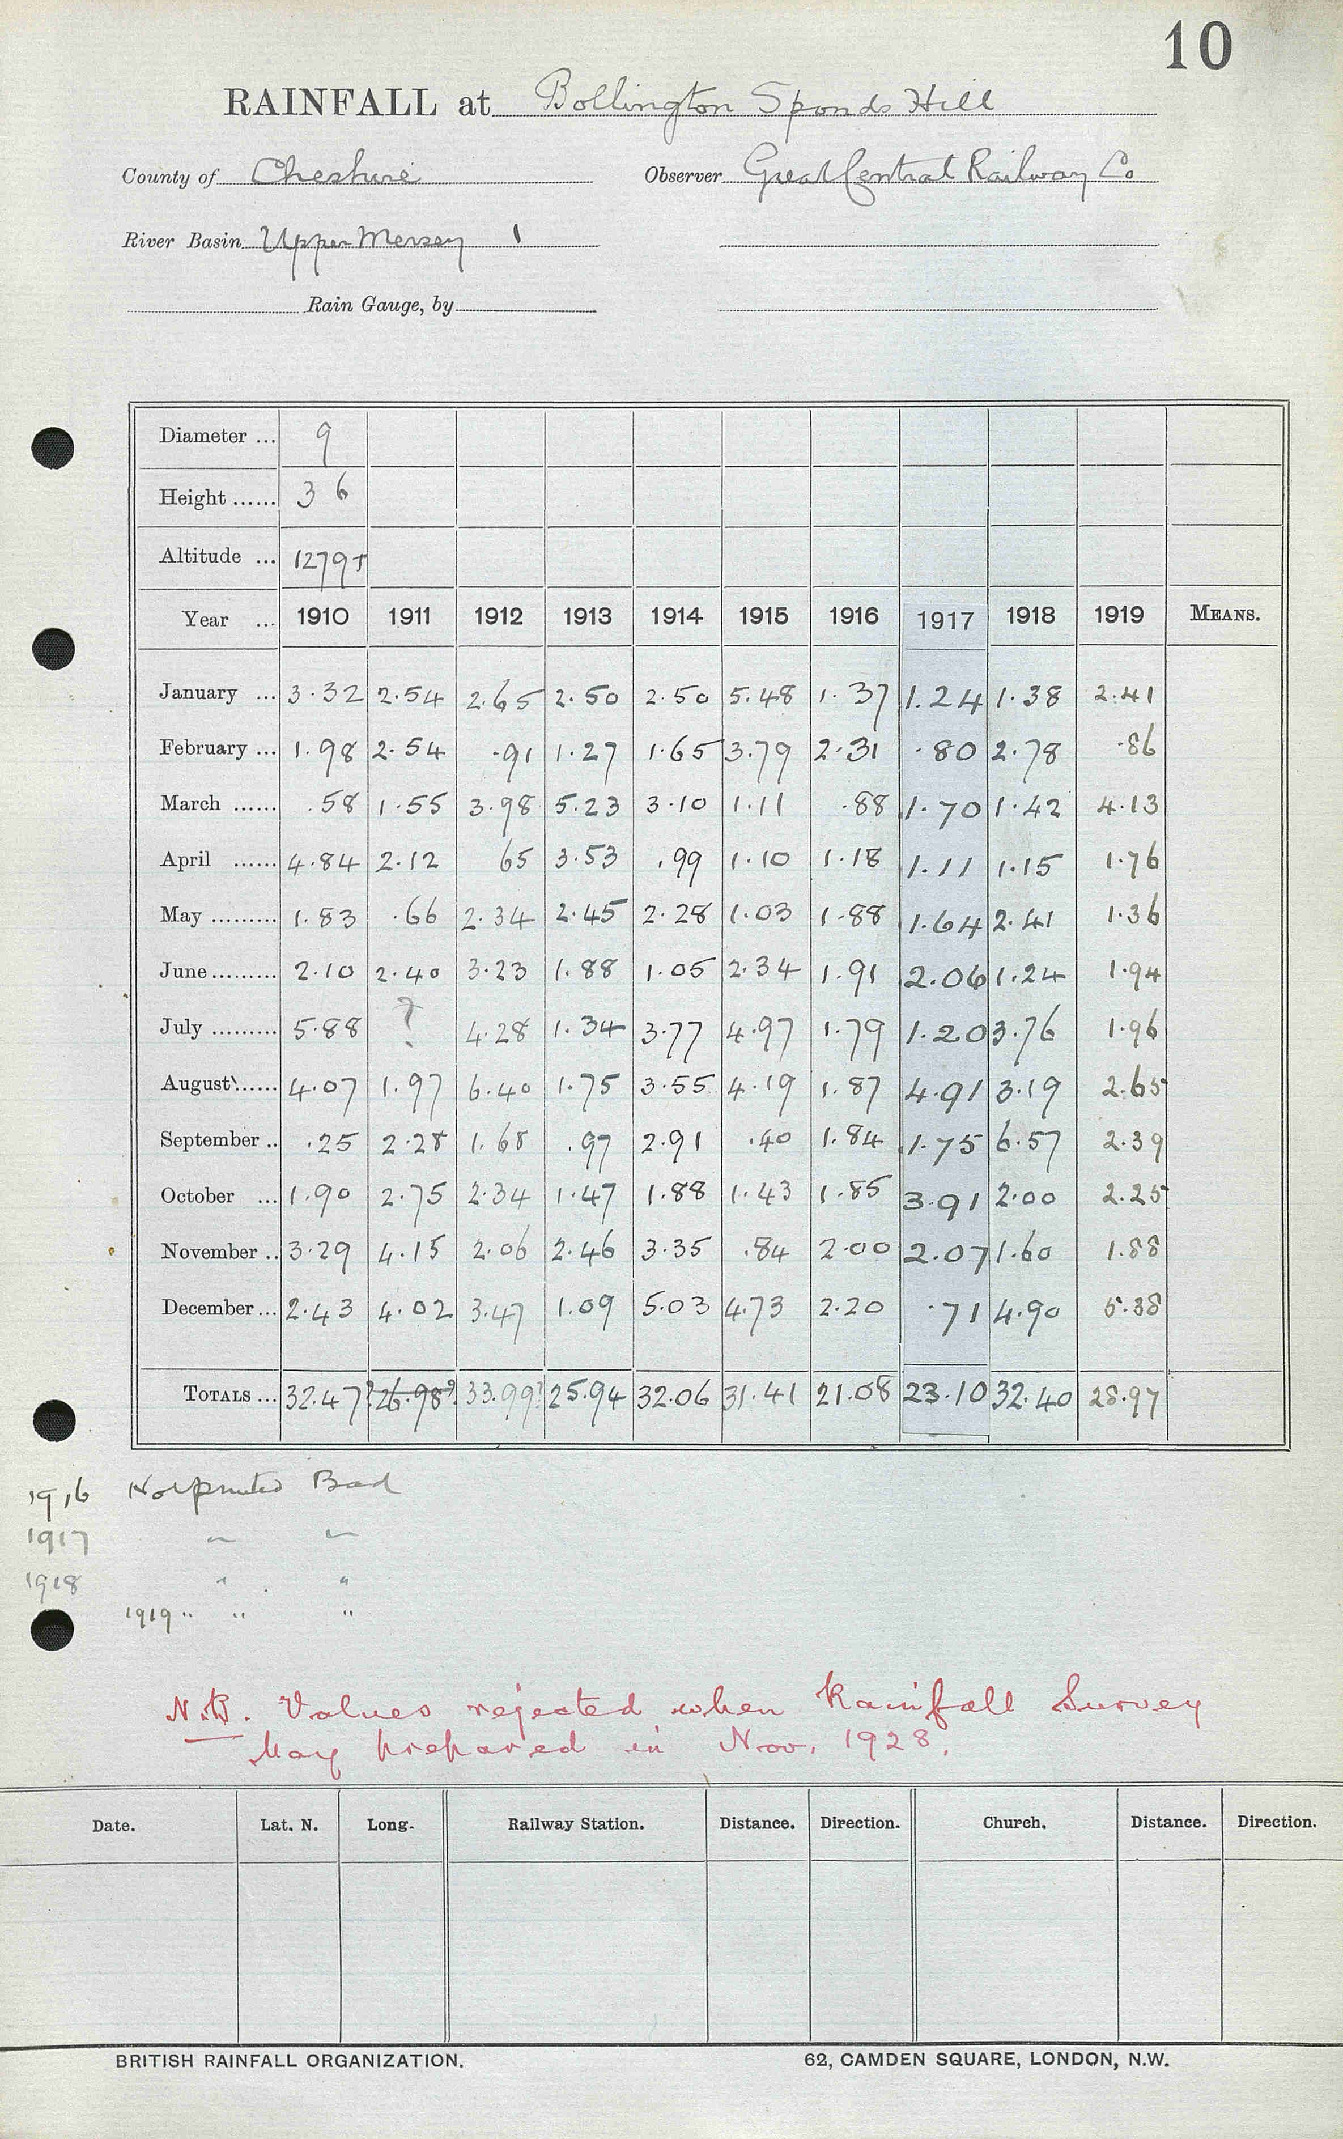 10
RAINFALL at Bollington Sponds Hill
County of Cheshire Observer Great Central Railway Co
River Basin Upper Mersey 1
Rain Gauge, by
Diameter ... 9
Height ...... 3 6
Altitude ... 1279
Year ... 1910 1911 1912 1913 1914 1915 1916 1917 1918 1919 MEANS.
January ... 3.32 2.54 2.65 2.50 2.50 5.48 1.37 1.24 1.38 2.41
February ... 1.98 2.54 .91 1.27 1.65 3.79 2.31 .80 2.78 .86
March ...... .58 1.55 3.98 5.23 3.10 1.11 .88 1.70 1.42 4.13
April ...... 4.84 2.12 65 3.53 .99 1.10 1.18 1.11 1.15 1.76
May .......... 1.83 .66 2.34 2.45 2.28 1.03 1.88 1.64 2.41 1.36
June .......... 2.10 2.40 3.23 1.88 1.05 2.34 1.91 2.06 1.24 1.94
July .......... 5.88 ? 4.28 1.34 3.77 4.97 1.79 1.20 3.76 1.96
August ...... 4.07 1.97 6.40 1.75 3.55 4.19 1.87 4.91 3.19 2.65
September .. .25 2.28 1.68 .97 2.91 .40 1.84 1.75 6.57 2.39
October ... 1.90 2.75 2.34 1.47 1.88 1.43 1.85 3.91 2.00 2.25
November .. 3.29 4.15 2.06 2.46 3.35 .84 2.00 2.07 1.60 1.88
December ... 2.43 4.02 3.47 1.09 5.03 4.73 2.20 .71 4.90 5.38
TOTALS ... 32.47? 26.98? 33.99? 25.94 32.06 31.41 21.08 23.10 32.40 28.97
1916 Not printed Bad
1917 " "
1918 " "
1919 " " "
N.B. Values rejected when Rainfall Survey
Map prepared in Nov. 1928.
Date. Lat. N. Long. Railway Station. Distance. Direction. Church. Distance. Direction.
BRITISH RAINFALL ORGANIZATION. 62, CAMDEN SQUARE, LONDON, N.W.